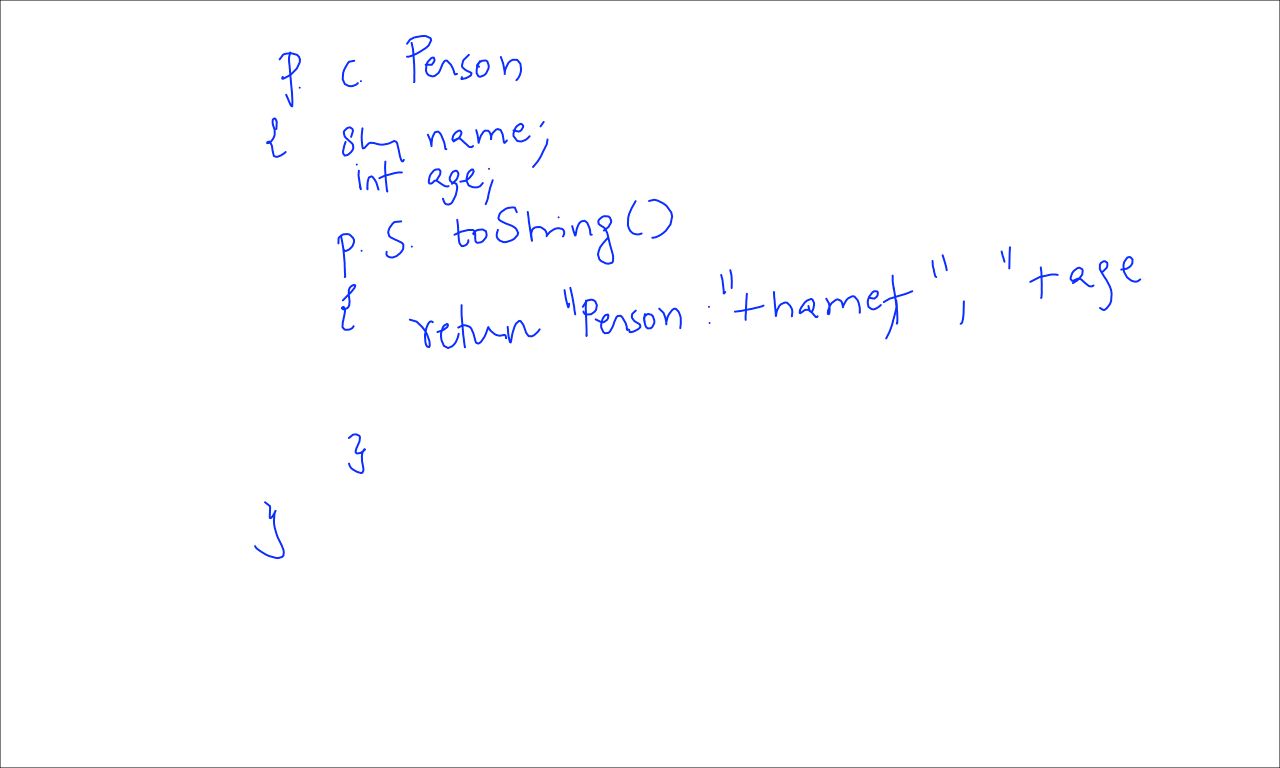 P. C. Person
{ Stry name;
int age;
p. S. toString()
{ return "Person : "+name+ ", " + age
}
}